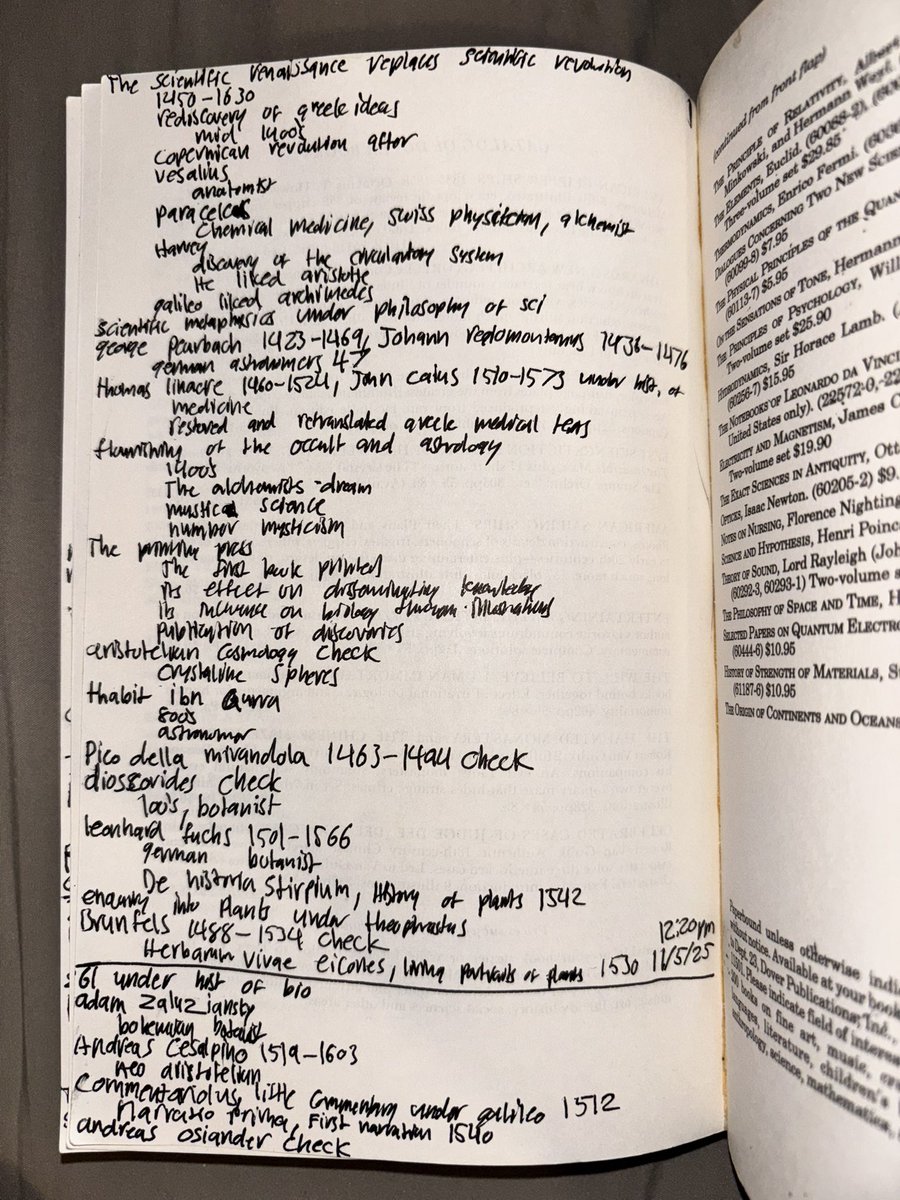 The scientific renaissance replaces scientific revolution
1450-1630
rediscovery of greek ideas
mid 1400s
copernican revolution after
vesalius
anatomist
paracelcs
chemical medicine, swiss physician, alchemist
Harvey
discovery of the circulatory system
He liked aristotle
galileo liked archimedes
scientific metaphysics under philosophy of sci
george peurbach 1423-1469, Johann regiomontanus 1436-1476
german astronomers 47
thomas linacre 1460-1524, John caius 1510-1573 under hist, of
medicine
restored and retranslated greek medical texts
flourishing of the occult and astrology
1400s
The alchemists dream
mystical science
number mysticism
The printing press
The first book printed
its effect on disseminating knowledge
its influence on biology through illustrations
publication of discoveries
aristotelian cosmology check
crystalline spheres
thabit ibn Qurra
800s
astronomer
Pico della mirandola 1463-1494 check
dioscorides check
100s, botanist
leonhard fuchs 1501-1566
german botanist
De historia Stirpium, History of plants 1542
enquiry into Plants under theophrastus
Brunfels 1488-1534 check
Herbarum vivae eicones, living portraits of plants 1530
12:20pm
11/5/25
61 under hist of bio
adam zaluziansky
bohemian botanist
Andreas Cesalpino 1519-1603
neo aristotelian
Commentariolus, little commentary under galileo 1512
Narratio Prima, First narration 1540
andreas osiander check
(continued from front flap)
THE PRINCIPLE OF RELATIVITY, Albert
Minkowski, and Hermann Weyl. (
THE ELEMENTS, Euclid. (60088-2), (600
Three-volume set $29.85
THERMODYNAMICS, Enrico Fermi. (603
DIALOGUES CONCERNING TWO NEW SCIEN
(60099-8) $7.95
THE PHYSICAL PRINCIPLES OF THE QUAN
(60113-7) $5.95
ON THE SENSATIONS OF TONE, Hermann
THE PRINCIPLES OF PSYCHOLOGY, Will
Two-volume set $25.90
HYDRODYNAMICS, Sir Horace Lamb. (
(60256-7) $15.95
THE NOTEBOOKS OF LEONARDO DA VINCI
United States only). (22572-0, 22
ELECTRICITY AND MAGNETISM, James C
Two-volume set $19.90
THE EXACT SCIENCES IN ANTIQUITY, Ott
OPTICKS, Isaac Newton. (60205-2) $9.
NOTES ON NURSING, Florence Nighting
SCIENCE AND HYPOTHESIS, Henri Poinc
THEORY OF SOUND, Lord Rayleigh (Joh
(60292-3, 60293-1) Two-volume s
THE PHILOSOPHY OF SPACE AND TIME, H
SELECTED PAPERS ON QUANTUM ELECTRO
(60444-6) $10.95
HISTORY OF STRENGTH OF MATERIALS, S
(61187-6) $10.95
THE ORIGIN OF CONTINENTS AND OCEANS
Paperbound unless otherwise indi
without notice. Available at your book
to Dept. 23, Dover Publications, Inc.,
11501. Please indicate field of interes
200 books on fine art, music, cra
languages, literature, children's
anthropology, science, mathematics,